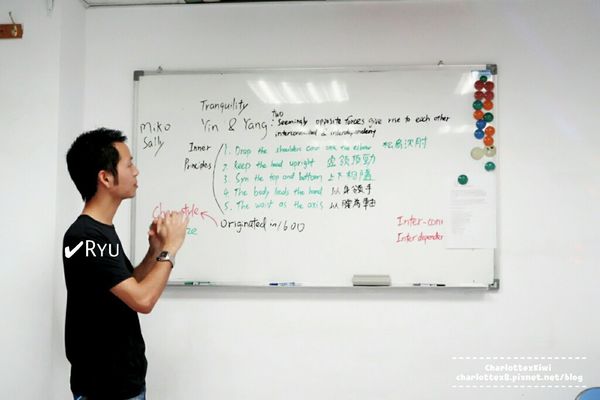 Tranquility
Miko
Sally
Yin & Yang : two seemingly opposite forces give rise to each other
interconnected & interdependency
Inner
Principles
1. Drop the shoulders and the elbow 松肩沉肘
2. Keep the head upright 虛領頂勁
3. Syn the top and bottom 上下相隨
4. The body leads the hand 以身領手
5. The waist as the axis 以腰為軸
Chen style
Originated in 1600
Inter-conn
Interdependen
✔RYU
CharlottexKiwi
charlottex8.pixnet.net/blog